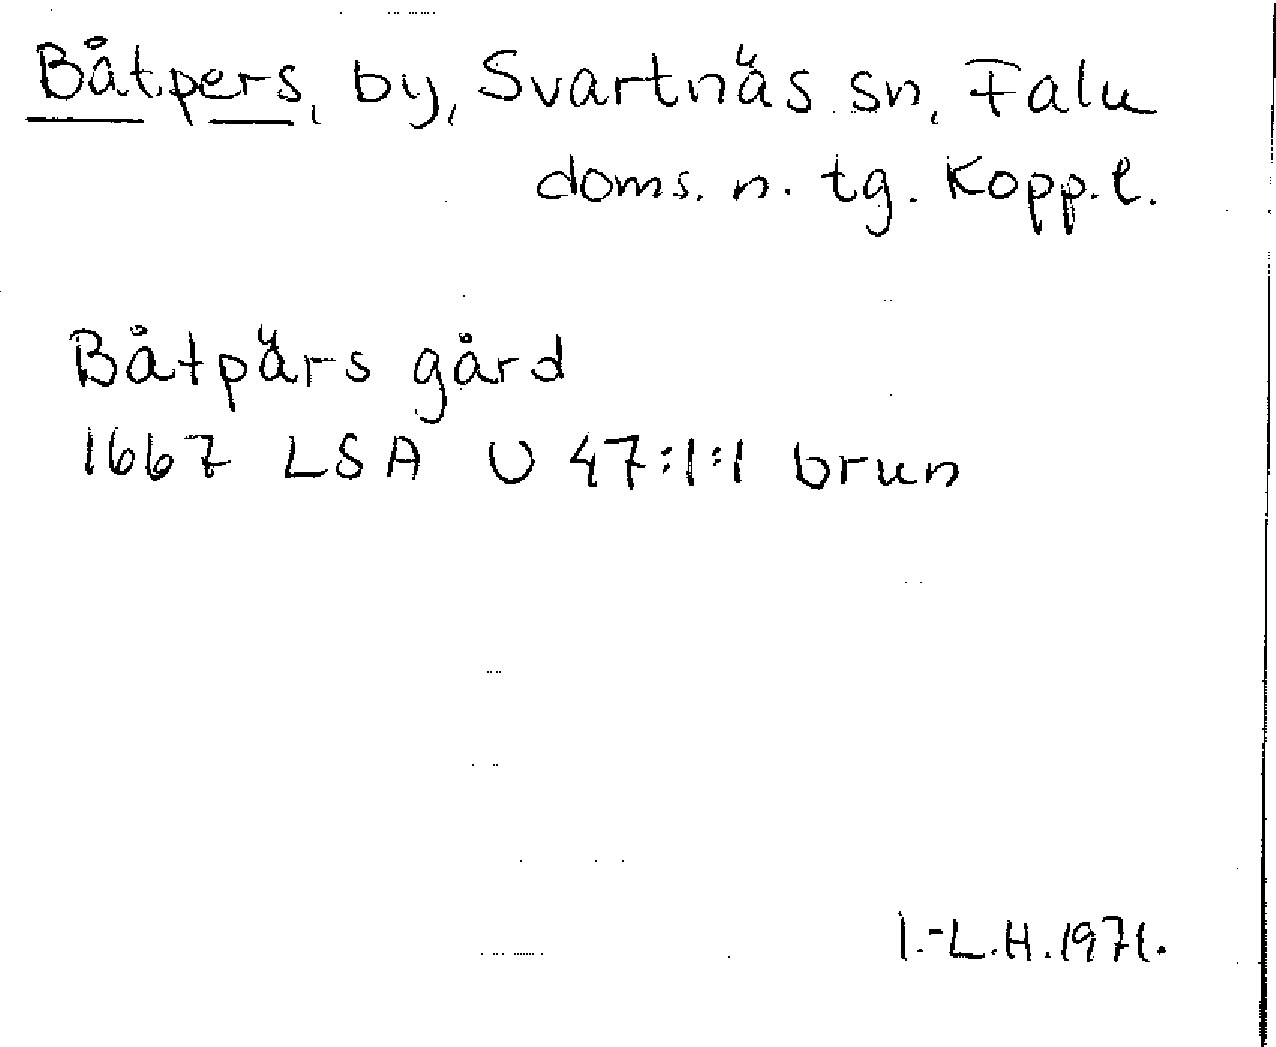 Båtpers, by, Svartnäs sn, Falu
doms. n. tg. Kopp. l.
Båtpärs gård
1667 LSA U 47:1:1 brun
I.-L.H. 1971.